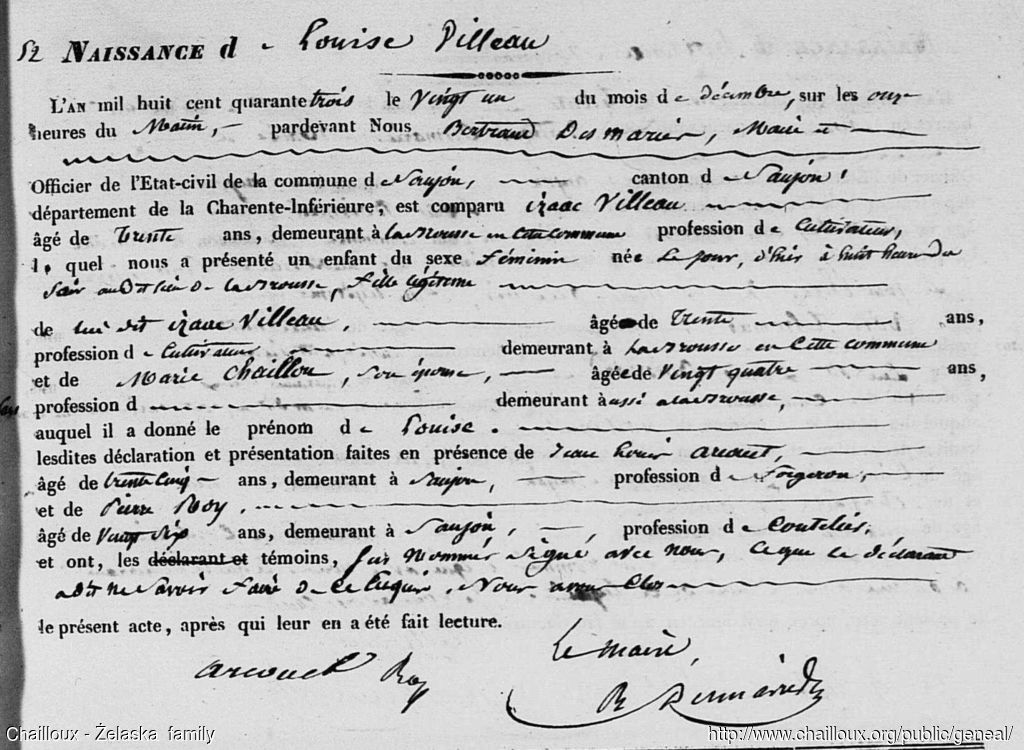 52 NAISSANCE d e Louise Villeau
L'AN mil huit cent quarante trois le Vingt un du mois de décembre, sur les onze
heures du Matin, pardevant Nous Bertrand Desmariés, Maire et
Officier de l'Etat-civil de la commune de Saujon, canton de Saujon,
département de la Charente-Inférieure, est comparu izaac Villeau
âgé de Trente ans, demeurant à labrousse en Cette Commune profession de Cultivateur,
lequel nous a présenté un enfant du sexe féminin née Le jour, d'hier à huit heures du
Soir audit lieu de labrousse, fille légitime
de lui dit izaac Villeau, âgé de Trente ans,
profession de Cultivateur demeurant à Labrousse en Cette commune
et de Marie Chaillou, son épouse, âgée de Vingt quatre ans,
profession d demeurant à aussi a labrousse,
auquel il a donné le prénom de Louise.
lesdites déclaration et présentation faites en présence de Jean Louis Arcouet,
âgé de trente Cinq ans, demeurant à Saujon, profession de Forgeron,
et de Pierre Roy.
âgé de Vingt Six ans, demeurant à Saujon, profession de Coutelier,
et ont, les déclarant et témoins, sus Nommés Signé avec nous, Ce que le déclarant
a dit ne Savoir faire de ce requis. Nous avons Clos
le présent acte, après qui leur en a été fait lecture.
Le maire,
Arcouet Roy
Chailloux - Żelaska family http://www.chailloux.org/public/geneal/